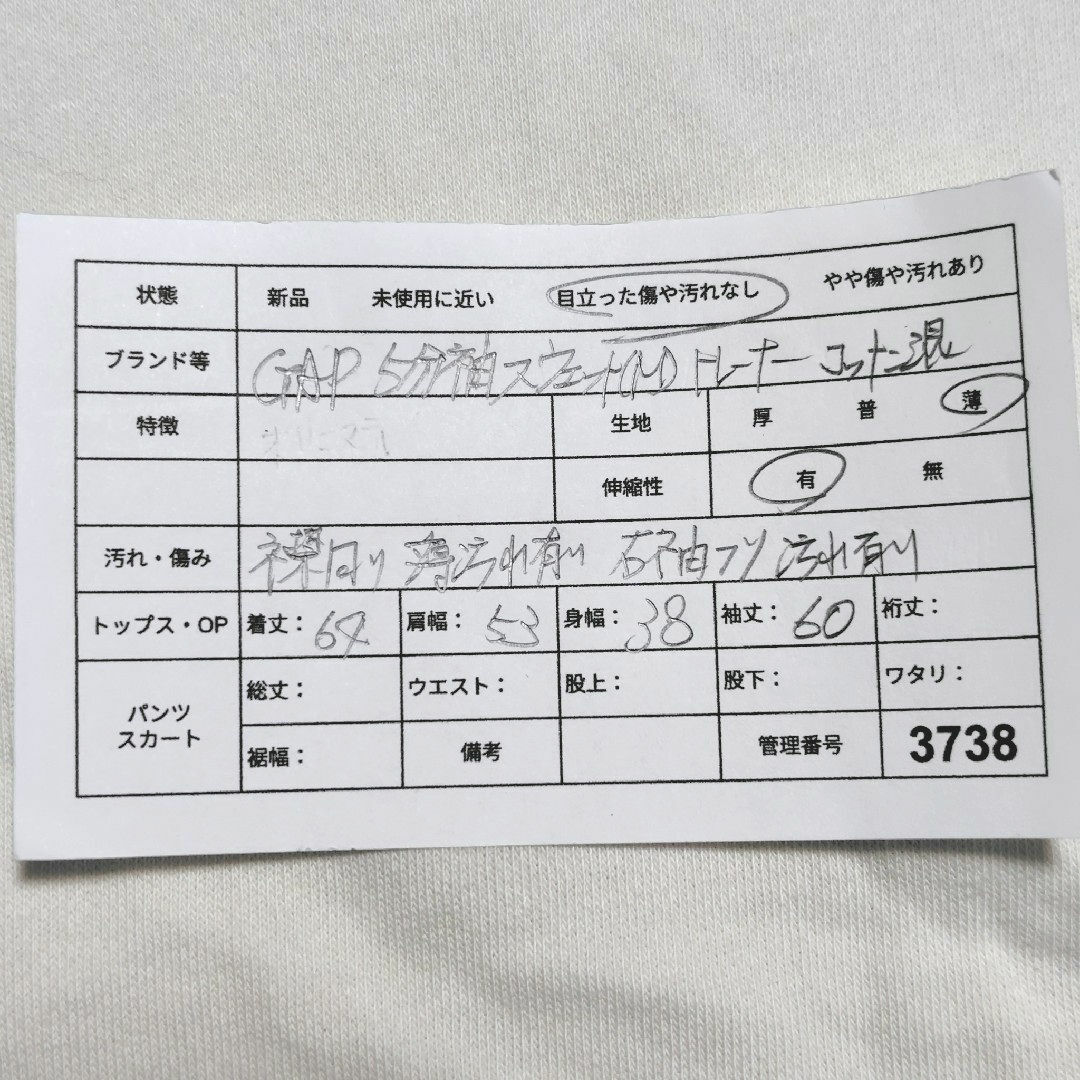 状態 新品 未使用に近い 目立った傷や汚れなし やや傷や汚れあり
ブランド等 GAP 5分袖スウェット(M) トレーナー コットン混
特徴 生地 厚 普 薄
伸縮性 有 無
汚れ・傷み 襟周り 薄汚れ有り 右袖フリ 汚れ有り
トップス・OP 着丈: 64 肩幅: 53 身幅: 38 袖丈: 60 裄丈:
パンツ スカート 総丈: ウエスト: 股上: 股下: ワタリ:
裾幅: 備考 管理番号 3738